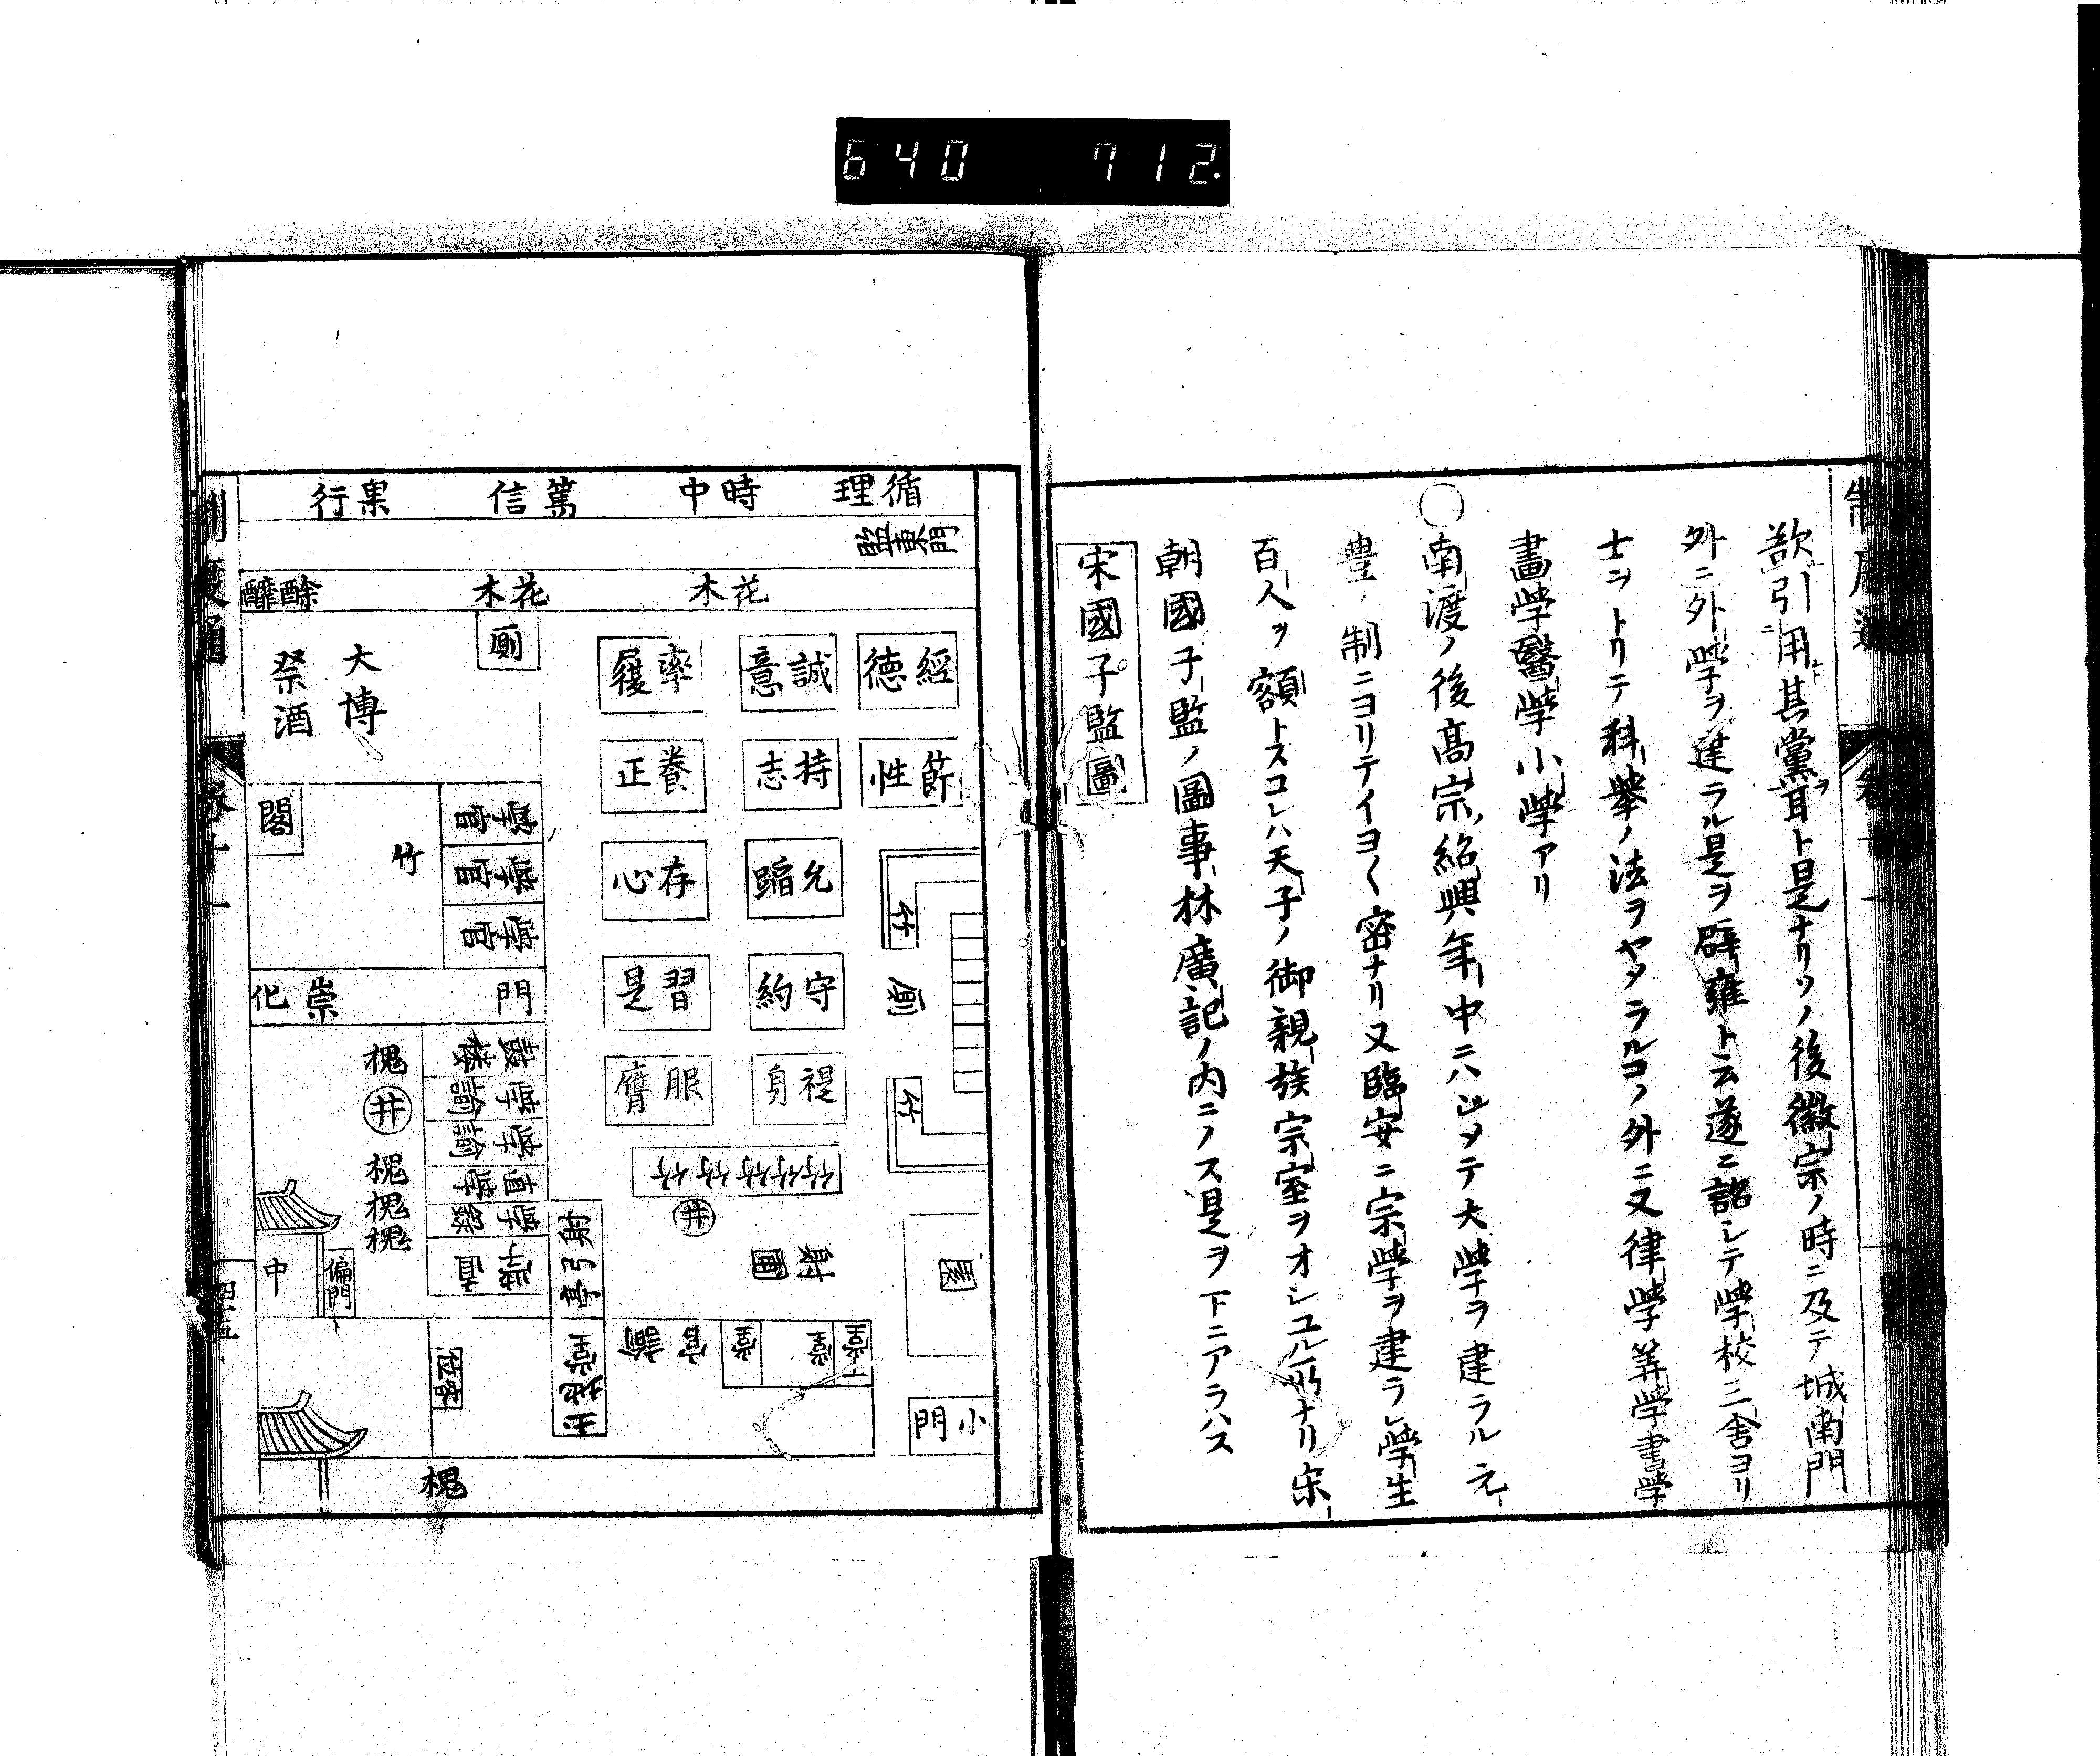 640 712.
制度通
歆引用其黨耳ト是ナリソノ後徽宗ノ時ニ及テ城南門
外ニ外学ヲ建ラル是ヲ辟雍ト云遂ニ詔シテ学校三舎ヨリ
士ヲトリテ科挙ノ法ヲヤメラルコノ外ニ又律学算学書学
畫学醫学小学アリ
○南渡ノ後髙宗紹興年中ニハジメテ大学ヲ建ラル元
豊ノ制ニヨリテイヨ〱密ナリ又臨安ニ宗学ヲ建ラレ学生
百人ヲ額トスコレハ天子ノ御親族宗室ヲオシユル所ナリ宋
朝國子監ノ圖事林廣記ノ内ニノス是ヲ下ニアラハス
宋國子監圖
循理
時中
篤信
果行
監東門
花木
花木
酴醾
經德
誠意
率履
厠
大博
祭酒
節性
持志
養正
学官
学官
学官
竹
閣
允蹈
存心
竹
厠
竹
守約
習是
門
崇化
禔身
服膺
鼓楼
学諭
学諭
直学
学録
槐
井
槐
槐
槐
竹竹竹竹竹竹
井
射圃
射弓亭
偏門
中
官諭
堂
堂
小門
位
槐
制度通
四十五